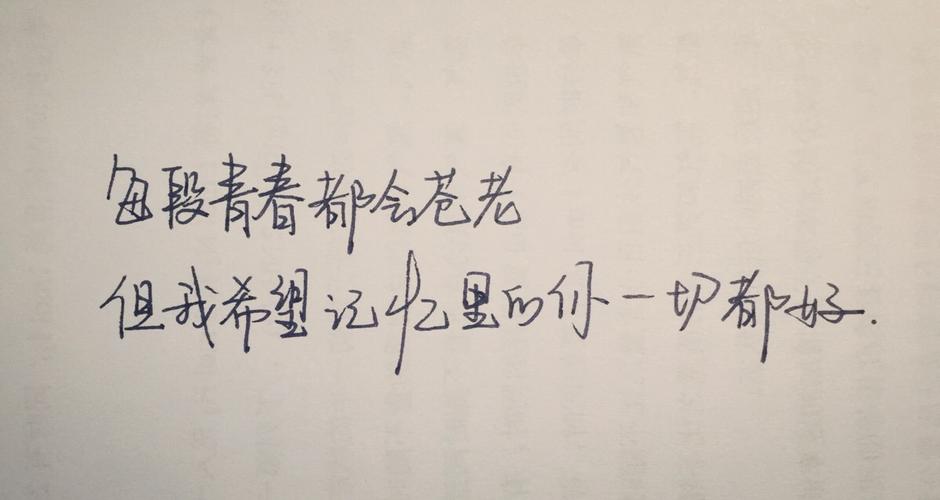 每段青春都会苍老
但我希望记忆里的你一切都好.